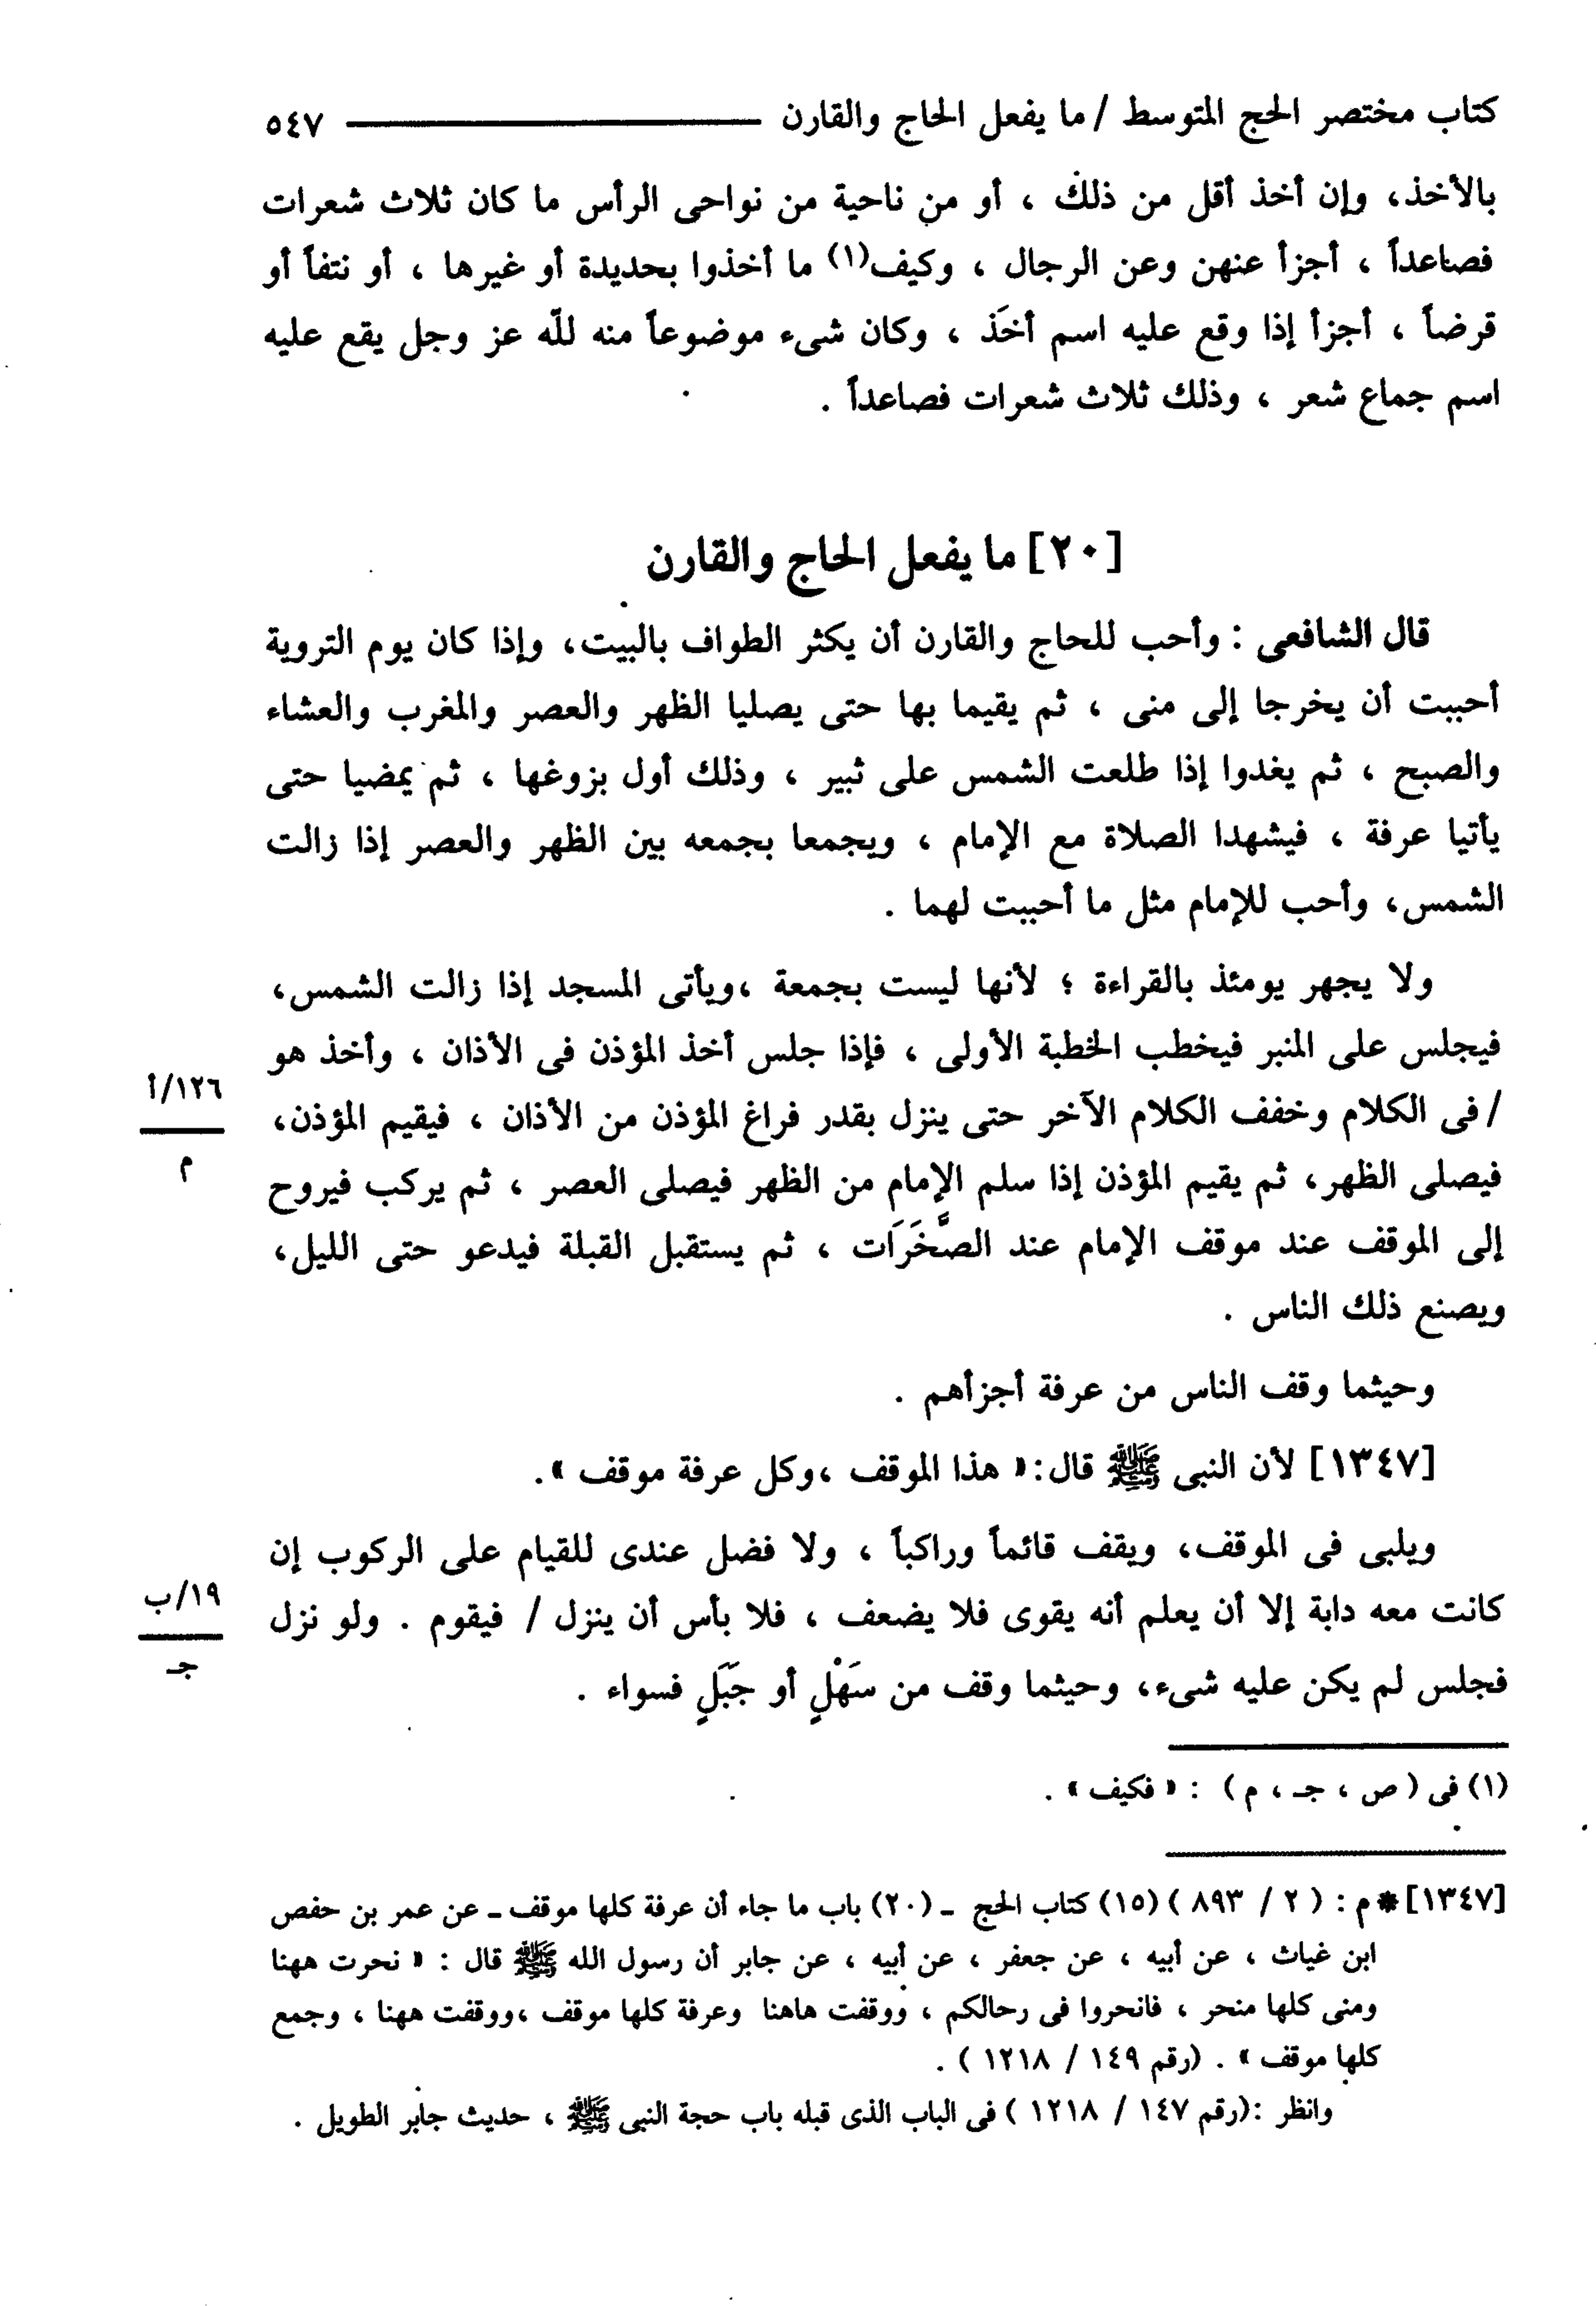 كتاب مختصر الحج المتوسط / ما يفعل الحاج والقارن ٥٤٧
بالأخذ، وإن أخذ أقل من ذلك ، أو من ناحية من نواحى الرأس ما كان ثلاث شعرات
فصاعداً ، أجزأ عنهن وعن الرجال ، وكيف(١) ما أخذوا بحديدة أو غيرها ، أو نتفاً أو
قرضاً ، أجزأ إذا وقع عليه اسم أخَذ ، وكان شىء موضوعاً منه لله عز وجل يقع عليه
اسم جماع شعر ، وذلك ثلاث شعرات فصاعداً .
[٢٠] ما يفعل الحاج والقارن
قال الشافعى : وأحب للحاج والقارن أن يكثر الطواف بالبيت، وإذا كان يوم التروية
أحببت أن يخرجا إلى منى ، ثم يقيما بها حتى يصليا الظهر والعصر والمغرب والعشاء
والصبح ، ثم يغدوا إذا طلعت الشمس على ثبير ، وذلك أول بزوغها ، ثم يمضيا حتى
يأتيا عرفة ، فيشهدا الصلاة مع الإمام ، ويجمعا بجمعه بين الظهر والعصر إذا زالت
الشمس، وأحب للإمام مثل ما أحببت لهما .
ولا يجهر يومئذ بالقراءة ؛ لأنها ليست بجمعة ،ويأتى المسجد إذا زالت الشمس،
فيجلس على المنبر فيخطب الخطبة الأولى ، فإذا جلس أخذ المؤذن فى الأذان ، وأخذ هو
/ فى الكلام وخفف الكلام الآخر حتى ينزل بقدر فراغ المؤذن من الأذان ، فيقيم المؤذن،
١٢٦/أ
م
فيصلى الظهر، ثم يقيم المؤذن إذا سلم الإمام من الظهر فيصلى العصر ، ثم يركب فيروح
إلى الموقف عند موقف الإمام عند الصَّخَرَات ، ثم يستقبل القبلة فيدعو حتى الليل،
ويصنع ذلك الناس .
وحيثما وقف الناس من عرفة أجزأهم .
[١٣٤٧] لأن النبى ﷺ قال: « هذا الموقف ،وكل عرفة موقف ».
ويلبى فى الموقف، ويقف قائماً وراكباً ، ولا فضل عندى للقيام على الركوب إن
كانت معه دابة إلا أن يعلم أنه يقوى فلا يضعف ، فلا بأس أن ينزل / فيقوم . ولو نزل
١٩/ب
جـ
فجلس لم يكن عليه شىء، وحيثما وقف من سَهْلٍ أو جَبَلٍ فسواء .
(١) فى ( ص ، جـ ، م ) : « فكيف » .
[١٣٤٧] * م : ( ٢ / ٨٩٣ ) (١٥) كتاب الحج ـ (٢٠) باب ما جاء أن عرفة كلها موقف ـ عن عمر بن حفص
ابن غياث ، عن أبيه ، عن جعفر ، عن أبيه ، عن جابر أن رسول الله ﷺ قال : « نحرت ههنا
ومنى كلها منحر ، فانحروا فى رحالكم ، ووقفت هاهنا وعرفة كلها موقف ،ووقفت ههنا ، وجمع
كلها موقف » . (رقم ١٤٩ / ١٢١٨ ) .
وانظر :(رقم ١٤٧ / ١٢١٨ ) فى الباب الذى قبله باب حجة النبى ﷺ ، حديث جابر الطويل .